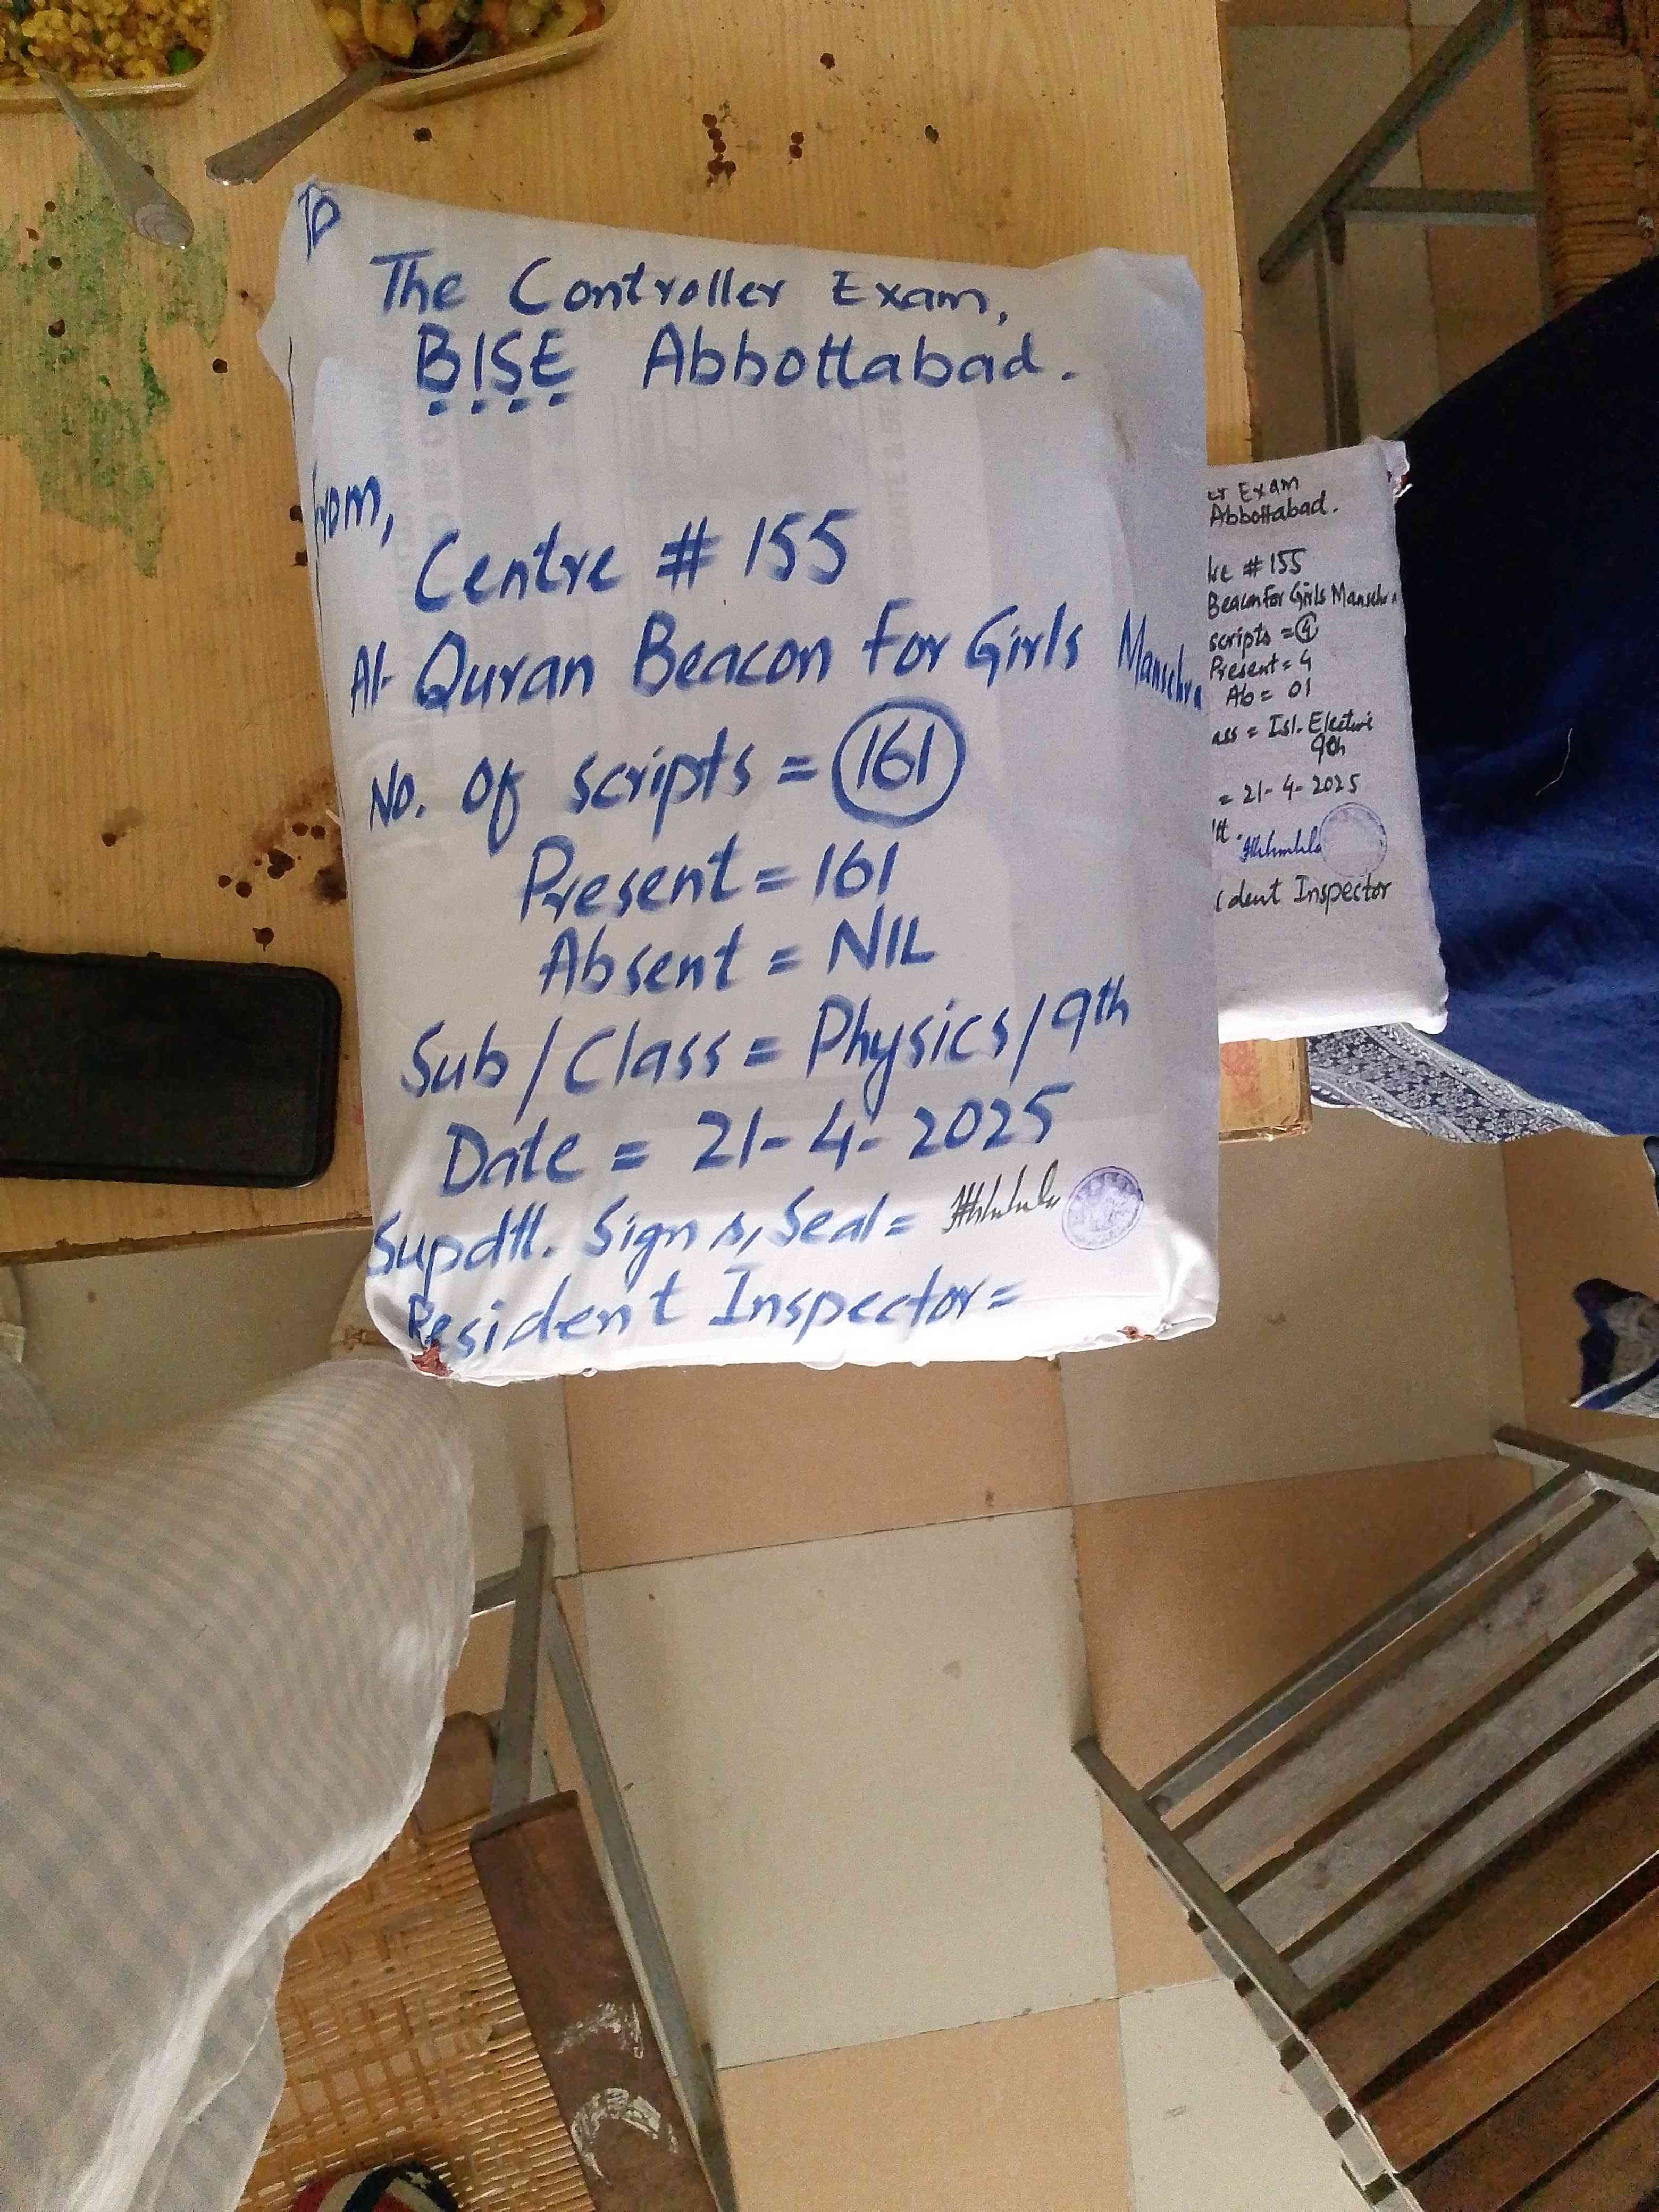 To
The Controller Exam,
BISE Abbottabad.
From,
Centre # 155
Al-Quran Beacon For Girls Mansehra
No. Of scripts = 161
Present = 161
Absent = NIL
Sub/Class = Physics/9th
Date = 21-4-2025
Supdtt. Sign &, Seal =
Resident Inspector =
er Exam
Abbottabad.
tre # 155
Beacon For Girls Mansehra
scripts = 4
Present = 4
Ab = 01
ass = Isl. Elective
9th
= 21-4-2025
tt.
ident Inspector